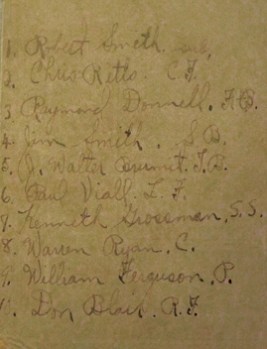 1. Robert Smith.
2. Chris Ketts. C.F.
3 Raymond Donnell. F.B.
4 Jim Smith. S.B.
5. J. Walter T.B.
6. Paul Vialf. L.F.
7. Kenneth Grossman. S.S.
8. Warren Ryan, C.
9. William Ferguson, P.
10. Don Blair. R.F.